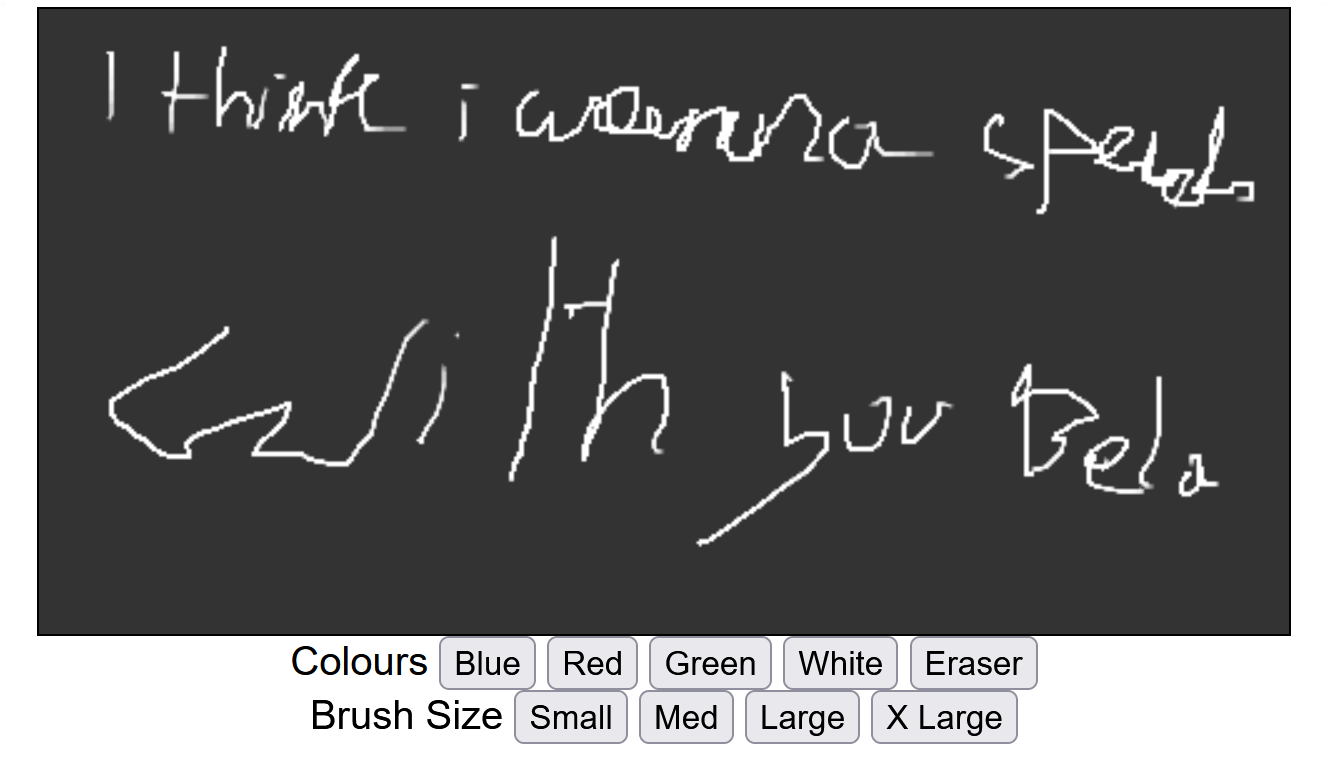 I think i wanna spend
with you Bela
Colours Blue Red Green White Eraser
Brush Size Small Med Large X Large